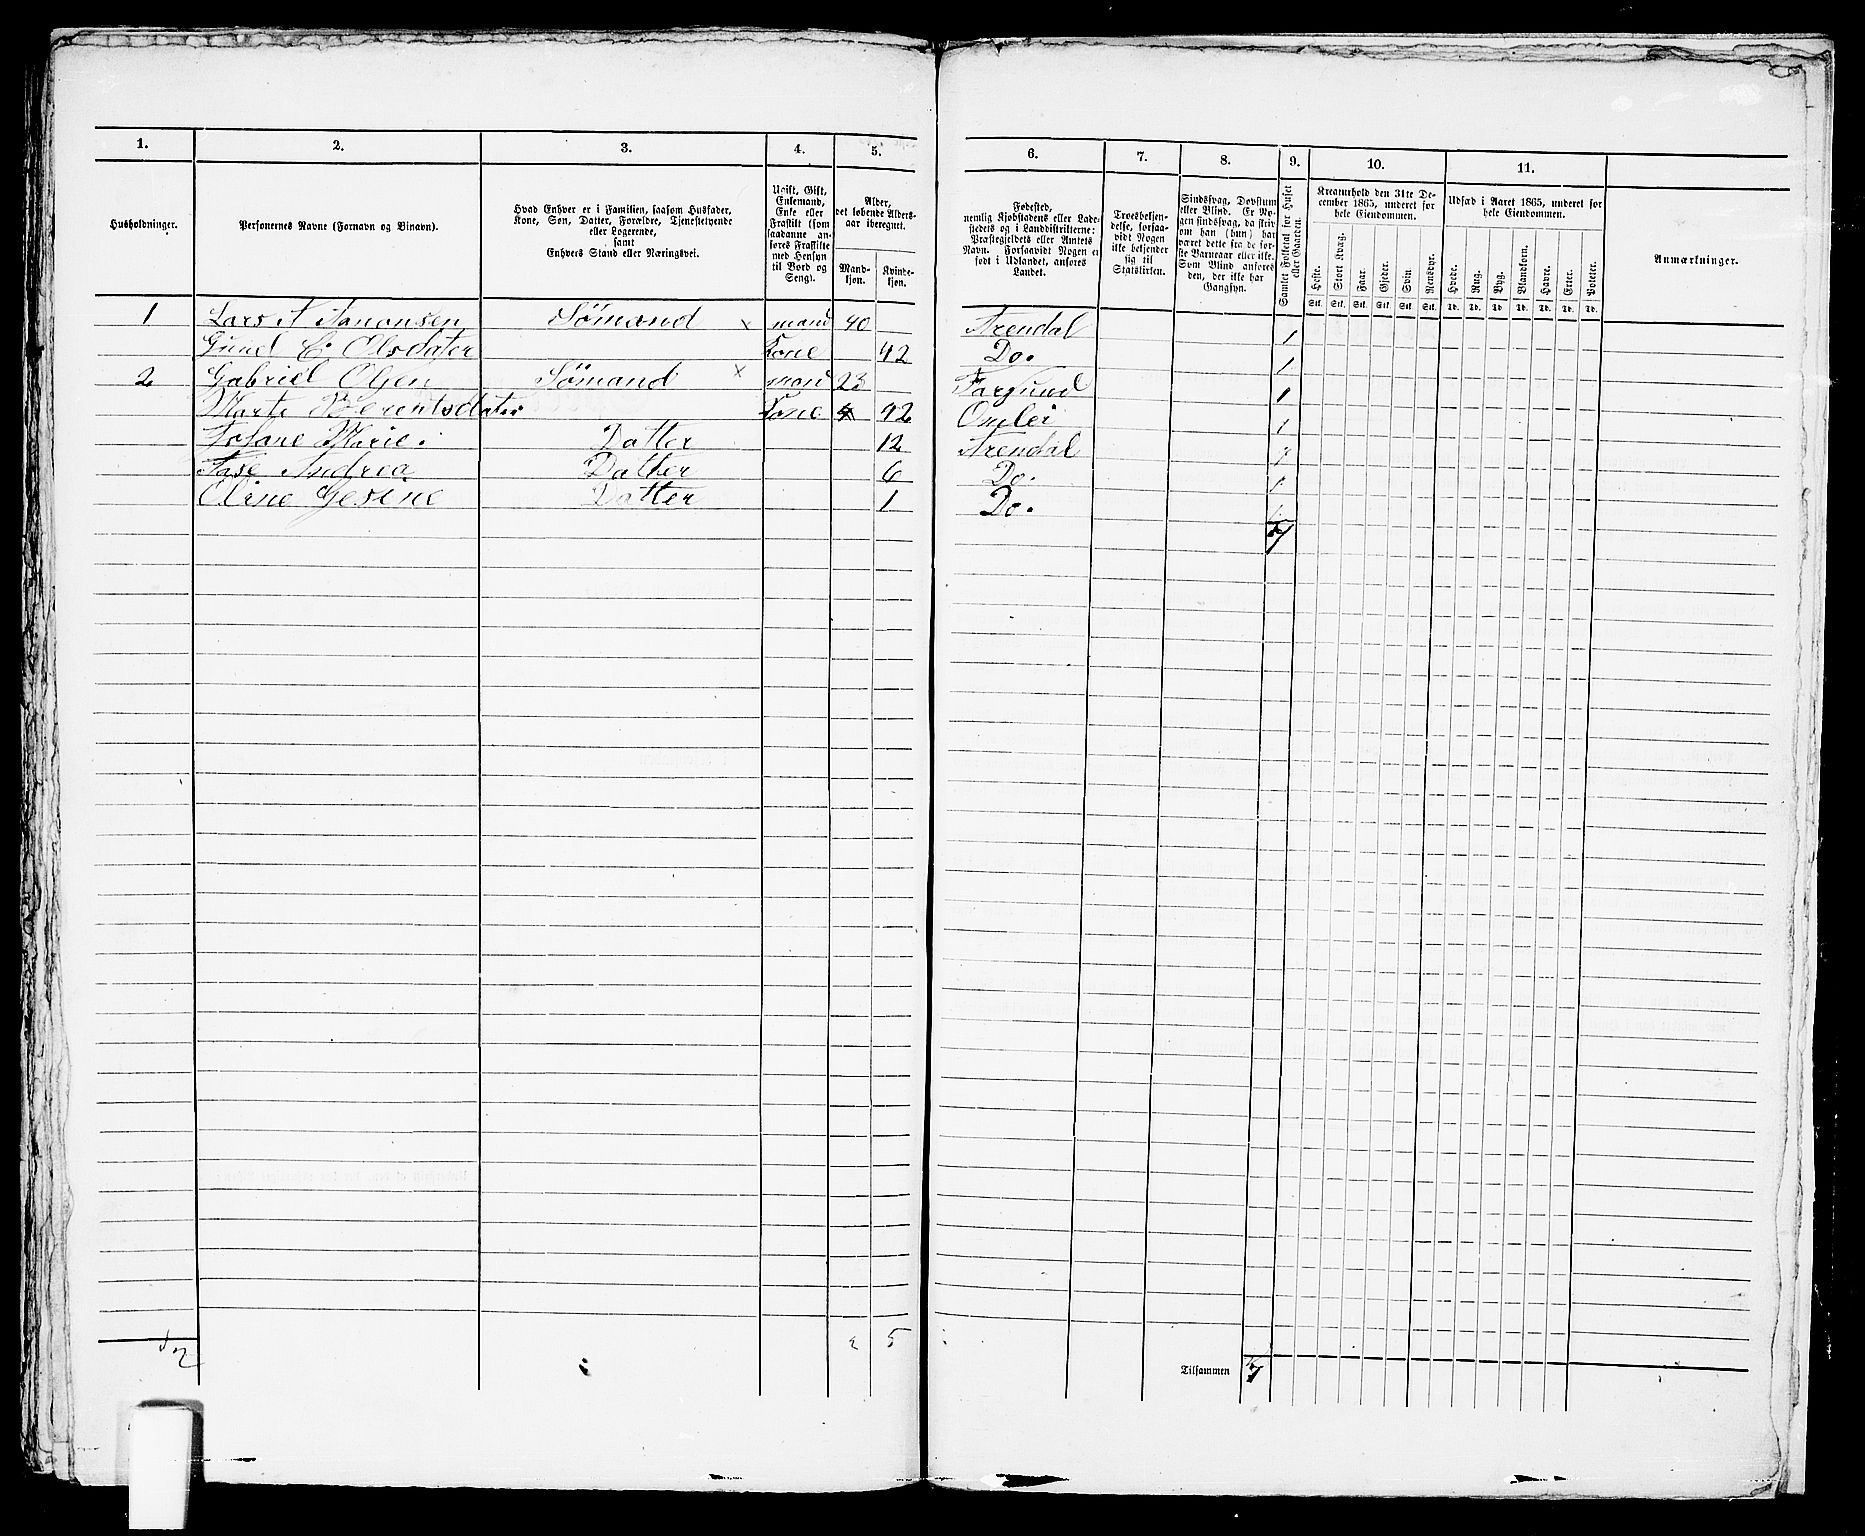 1. 2. 3. 4. 5. 6. 7. 8. 9. 10. 11.
Husholdninger.
Personernes Navne (Fornavn og Binavn).
Hvad Enhver er i Familien, saasom Husfader,
Kone, Søn, Datter, Forældre, Tjenestetyende
eller Logerende,
samt
Enhvers Stand eller Næringsvei.
Ugift, Gift,
Enkemand,
Enke eller
Fraskilt (som
saadanne an-
føres Fraskilte
med Hensyn
til Bord og
Seng).
Alder,
det løbende Alders-
aar iberegnet.
Mand-
kjøn.
Kvinde-
kjøn.
Fødested,
nemlig Kjøbstadens eller Lade-
stedets og i Landdistrikterne:
Præstegjeldets eller Amtets
Navn. Forsaavidt Nogen er
født i Udlandet, anføres
Landet.
Troesbekjen-
delse, forsaa-
vidt Nogen
ikke bekjender
sig til
Statskirken.
Sindssvag, Døvstum
eller Blind. Er No-
gen sindssvag, da skriv
om han (hun) har
været dette fra de før-
ste Barneaar eller ikke.
Som Blind anføres
den, der ikke har
Gangsyn.
Samlet Folketal for Huset
eller Gaarden.
Kreaturhold den 31te De-
cember 1865, underet for
hele Eiendommen.
Heste. Stort Kvæg. Faar. Gjeder. Svin. Rensdyr.
Stk. Stk. Stk. Stk. Stk. Stk.
Udsæd i Aaret 1865, underet for
hele Eiendommen.
Hvede. Rug. Byg. Blandkorn. Havre. Erter. Poteter.
Td. Td. Td. Td. Td. Td. Td.
Anmærkninger.
1 Lars A Aanonsen Sømand x mand 40 Arendal 1
Gund C. Olsdater Kone 42 Do. 1
2 Gabriel Olsen Sømand x mand 23 Farsund 1
Marte Berentsdater Kone 42 Omlei 1
Marie. Datter 12 Arendal
Andrea Datter 6 Do.
Gesine Datter 1 Do.
7
2 2 5
Tilsammen 7